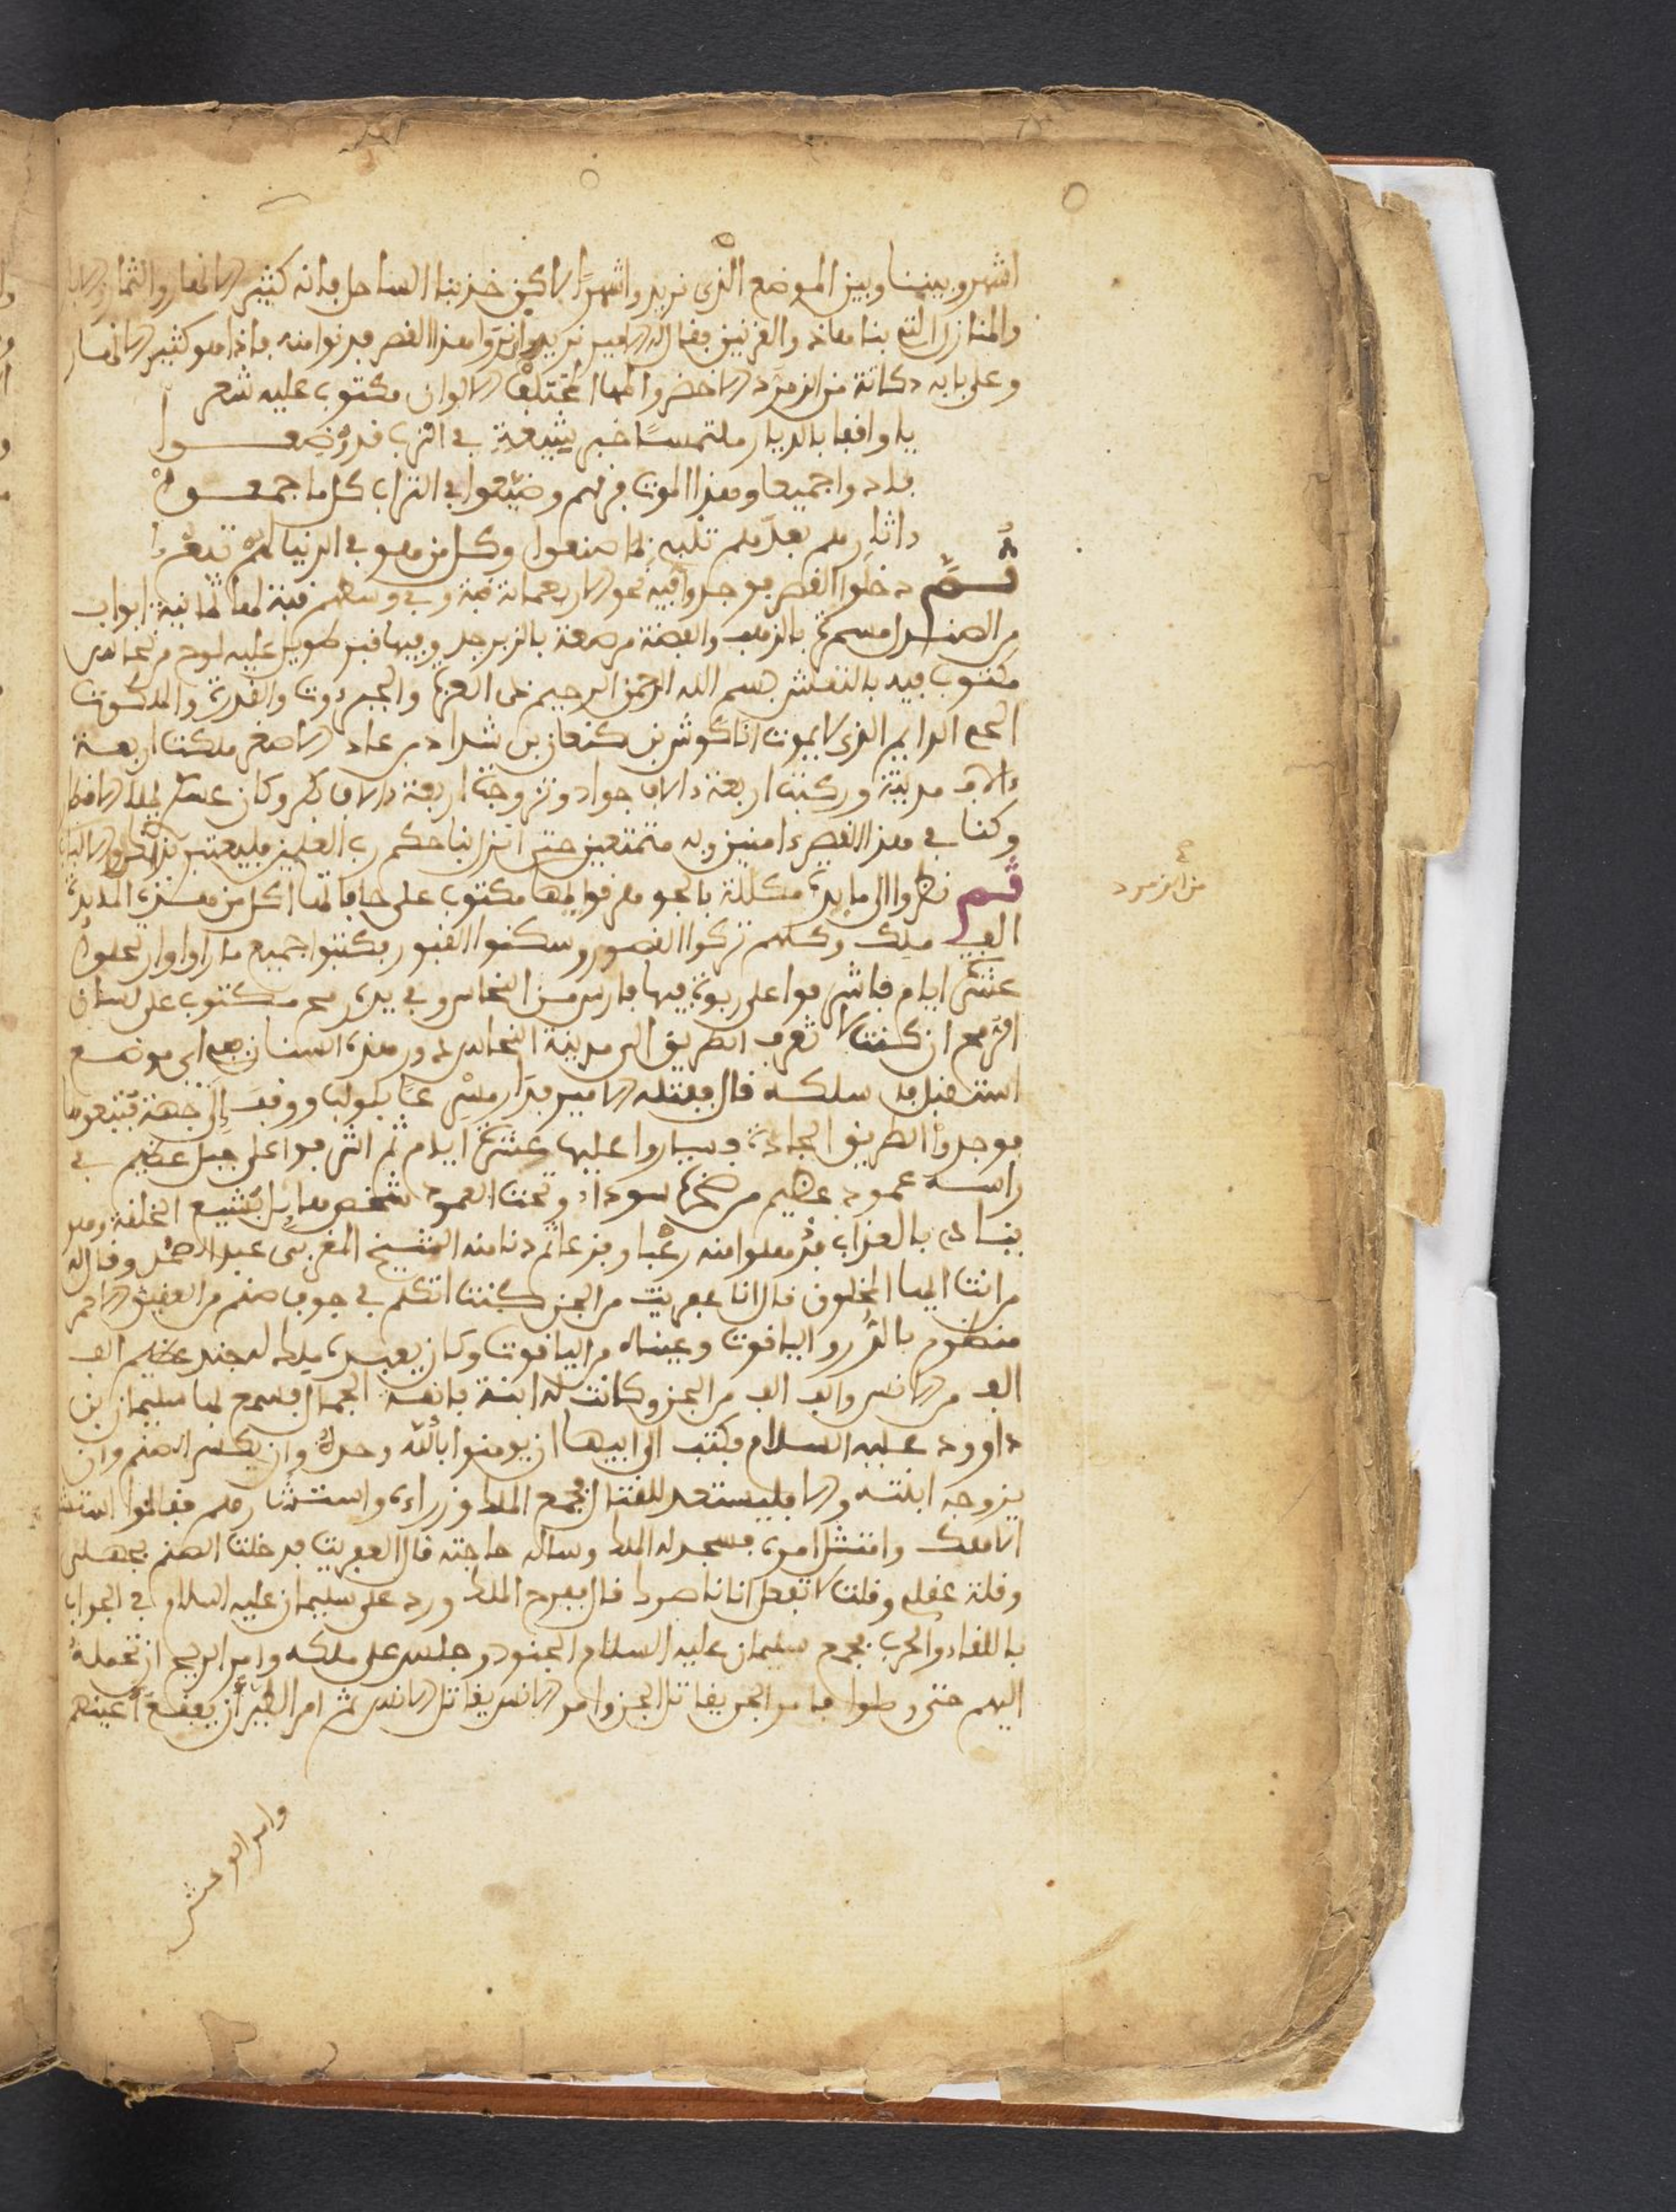 اشهر وبيننا وبين الموضع الذي نريد واشهرًا لاكن خذ بنا الساحل فانه كثير الانهار والثمار
والمنازل التي بناها ذو القرنين فقال الامير نريد ان نروا هذا القصر فدنوا منه فاذا هو كثير الانهار
وعلى بابه دكانة من الزمرد الاخضر والمها المختلف الالوان مكتوب عليه شعر
يا واقفا بالديار ملتمسًا خبر شيعة في الترب قد وضعوا
بادوا جميعا وهذا الموت فرقهم وضيعوا في التراب كل ما جمعوا
داثارهم بعدهم تنبيه لما صنعوا وكل من هو في الدنيا
ثم دخلوا القصر فوجدوا فيه نحو الاربعمائة قبة وفي وسطهم قبة لها ثمانية ابواب
من الصندل مسمرة بالذهب والفضة مرصعة بالزبرجد وفيها قبر طويل عليه لوح من نحاس
مكتوب فيه بالنقش بسم الله الرحمن الرحيم ذي العزة والجبروت والقدرة والملكوت
الحي الدايم الذي لا يموت انا كوش بن كنعان بن شداد بن عاد الاصغر ملكت اربعة
ءالاف مدينة وركبت اربعة ءالاف جواد وتزوجت اربعة ءالاف بكر وكان
وكنا في هذا القصر ءامنين وبه متمتعين حتى انزل بنا حكم رب العلمين فليعتبر
ثم نظروا الى مايدة مكللة بالجوهر فوقها مكتوب على حافاتها اكل من هذه المايدة
من الزمرد
الف ملك وكلهم تركوا القصور وسكنوا القبور فكتبوا جميع ما راوا وارتحلوا
عشرة ايام فاشرفوا على ربوة فيها فارس من النحاس وفي يده رمح مكتوب على لسان
الرمح ان كنت لا تعرف الطريق الى مدينة النحاس فدور هذه السنان الى موضع
استقبل سلكه قال ففتله الامير فدار مسرعا كوكب ووقف الى جهة فتبعوها
فوجدوا الطريق الجادة فساروا عليها عشرة ايام ثم اشرفوا على جبل عظيم في
راسه عمود عظيم من صخرة سودا وتحت العمود شخص هايل بشيع الخلقة وهو
ينادى بالعذاب فذهلوا منه رعبا وفزعا ثم دنا منه الشيخ المغربي عبد الصمد وقال له
من انت ايها المخلوق قال انا عفريت من الجن كنت اتكلم في جوف صنم من العقيق الاحمر
منظوم بالدر والياقوت وعيناه من الياقوت وكان يعبده ملك له جند عظيم الف
الف من الانس والف الف من الجن وكانت له ابنة فائقة الجمال فسمع بها سليمان بن
داوود عليه السلام فكتب الى ابيها ان يومنوا بالله وحده وان يكسر الصنم وان
يزوجه ابنته والا فليستعد للقتال فجمع الملك وزراءه واستشارهم فقالوا
الاهك وامتثل امره فسجد له الملك وساله حاجته قال العفريت فدخلت الصنم بجهلي
وقلة عقلي وقلت لا تفعل انا ناصرك قال ففرح الملك ورد على سليمان عليه السلام في الجواب
باللقاء والحرب فجمع سليمان عليه السلام الجنود وجلس على ملكه وامر الريح ان تحمله
اليهم حتى وصلوا فامر الجن يقاتل الجن وامر الانس يقاتل الانس ثم امر الطير ان يفقع اعينهم
وامر الوحش